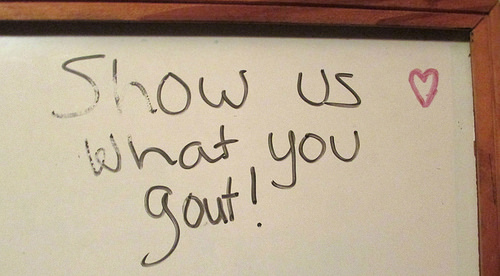 Show us
what you
gout!